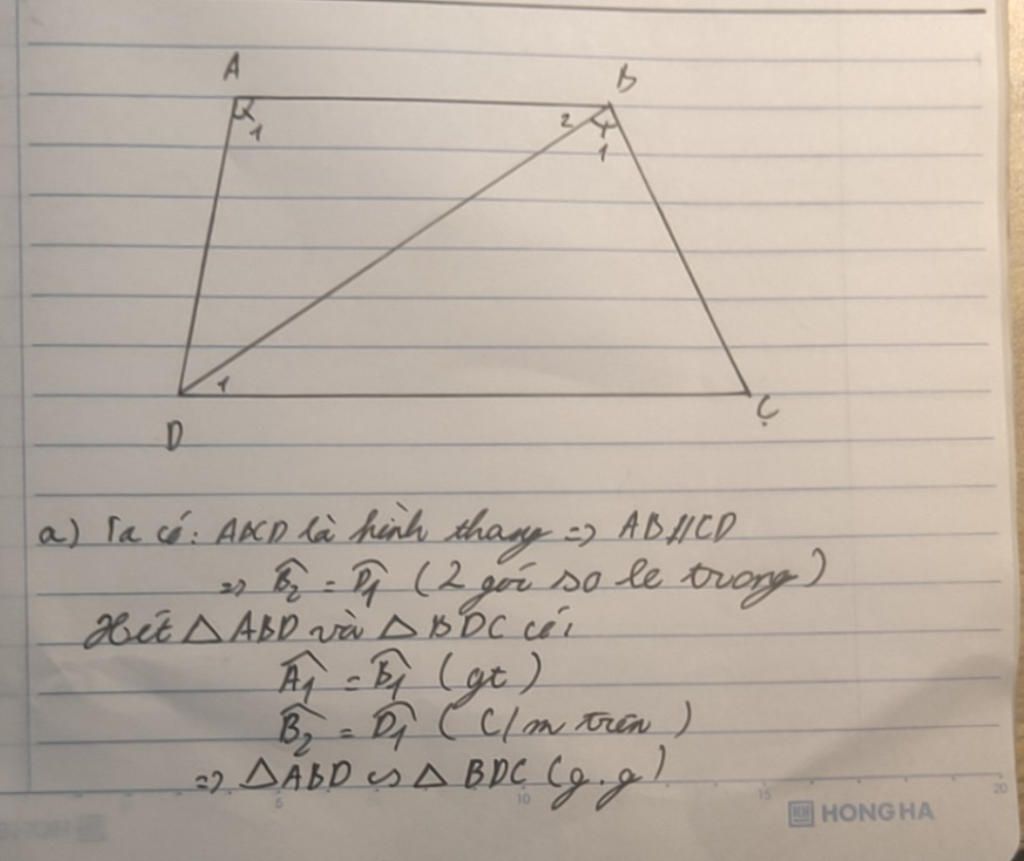 A
B
1
2
1
1
D
C
a) Ta có: ABCD là hình thang => AB//CD
=> B̂₂ = D̂₁ (2 góc so le trong)
Xét △ABD và △BDC có:
Â₁ = B̂₁ (gt)
B̂₂ = D̂₁ (C/m trên)
=> △ABD ∽ △BDC (g.g)
5 10 15 20
HONG HA